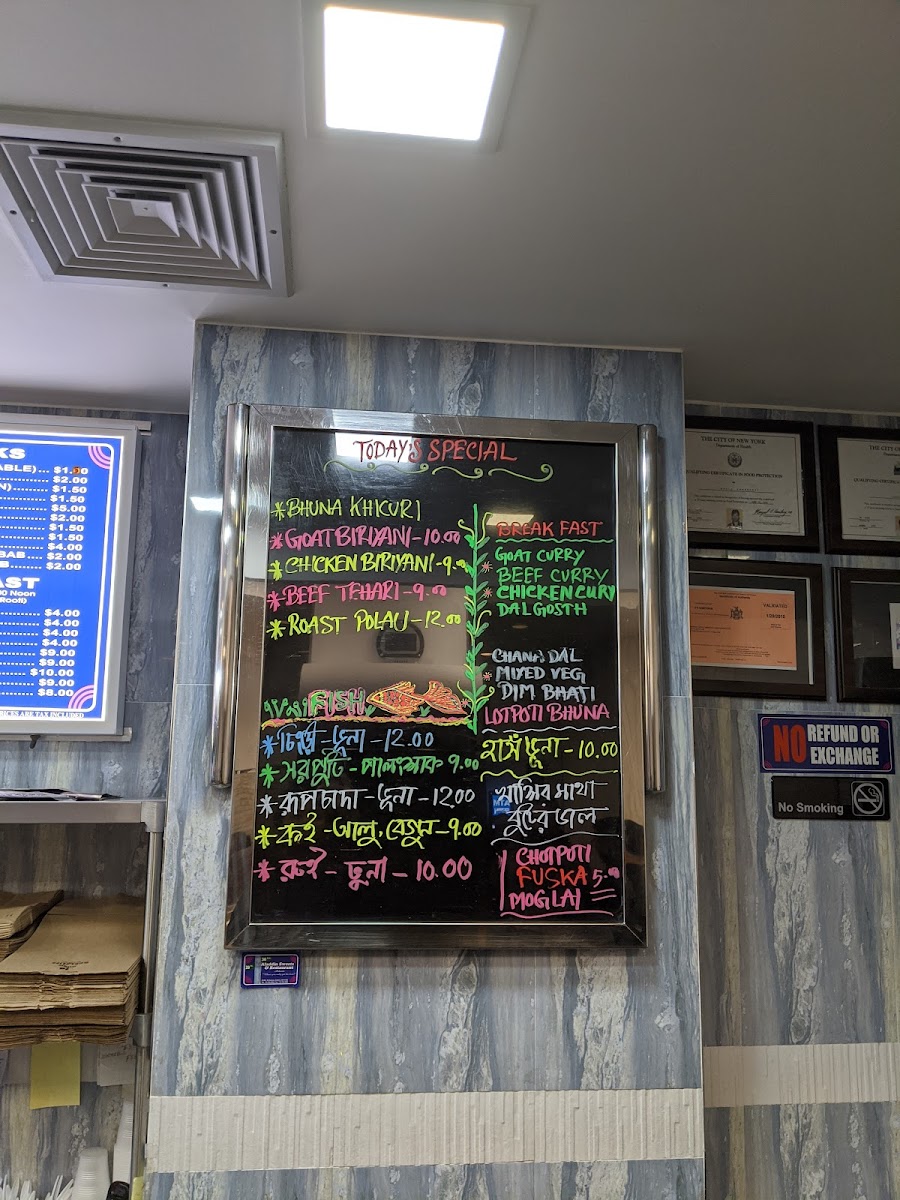 TODAY'S SPECIAL
*BHUNA KHICURI
*GOAT BIRIYANI - 10.00
*CHICKEN BIRIYANI - 9.00
*BEEF TEHARI - 9.00
*ROAST POLAU - 12.00
FISH
*চিংড়ি - ভূনা - 12.00
*সরপুটি - পালংশাক 9.00
*রূপচাদা - ভূনা - 1200
*কই - আলু, বেগুন - 9.00
*রুই - ভুনা - 10.00
BREAK FAST
GOAT CURRY
BEEF CURRY
CHICKEN CURY
DAL GOSTH
CHANA DAL
MIXED VEG
DIM BHAJI
LOTPOTI BHUNA
হাঁস ভূনা - 10.00
খাসির মাথা
বুটের ডাল
CHOTPOTI
FUSKA 5.00
MOGLAI
KS
ABLE)... $1.
$2.00
N) $1.50
$1.50
$5.00
$2.00
$1.50
$1.50
$4.00
BAB $2.00
B $2.00
AST
00 Noon
Rooti)
$4.00
$4.00
$4.00
$4.00
$9.00
$9.00
$10.00
$9.00
$8.00
RICES ARE TAX INCLUDED
THE CITY OF NEW YORK
Department of Health
QUALIFYING CERTIFICATE IN FOOD PROTECTION
THE CITY OF
NO REFUND OR
EXCHANGE
No Smoking
MTA
Aladdin Sweets
& Restaurant